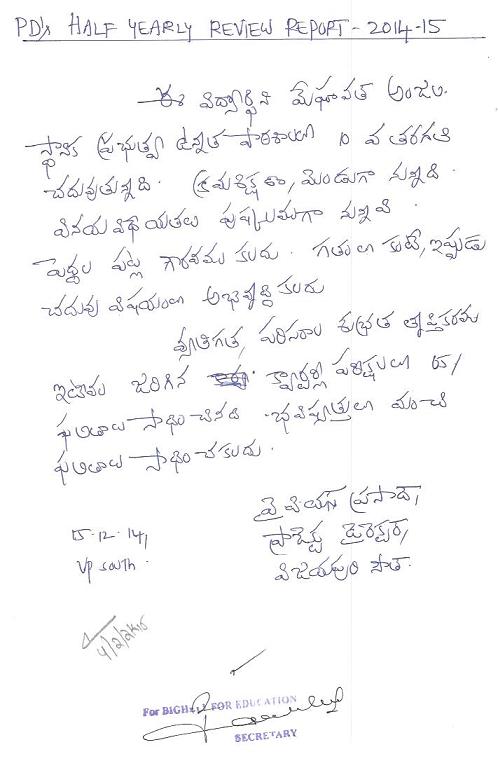 PD's HALF YEARLY REVIEW REPORT - 2014-15
ఈ విద్యార్థిని మేఘావత్ అంజలి.
స్థానిక ప్రభుత్వ ఉన్నత పాఠశాలలో 10 వ తరగతి
చదువుతున్నది. క్రమశిక్షణ, మెండుగా నున్నది.
వినయ విధేయతలు పుష్కలముగా నున్నవి.
పెద్దల పట్ల గౌరవము కలదు. గతంలో కంటే, ఇప్పుడు
చదువు విషయంలో అభివృద్ధి కలదు
వ్యక్తిగత, పరిసరాల శుభ్రత తృప్తికరము
ఇటీవల జరిగిన క్వార్టర్లీ పరీక్షలలో
ఫలితాలు సాధించినది. భవిష్యత్తులో మంచి
ఫలితాలు సాధించగలదు.
వై వి యస్ ప్రసాద్,
ప్రాజెక్టు డైరెక్టర్,
విజయపురి సౌత్.
15-12-14,
VP South.
4/2/2k15
For BIGHELP FOR EDUCATION
SECRETARY